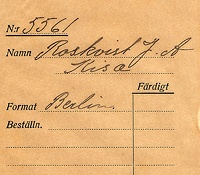 N:r 5561
Namn Roskvist J. A
Kisa
Färdigt
Format Berlin
Beställn.